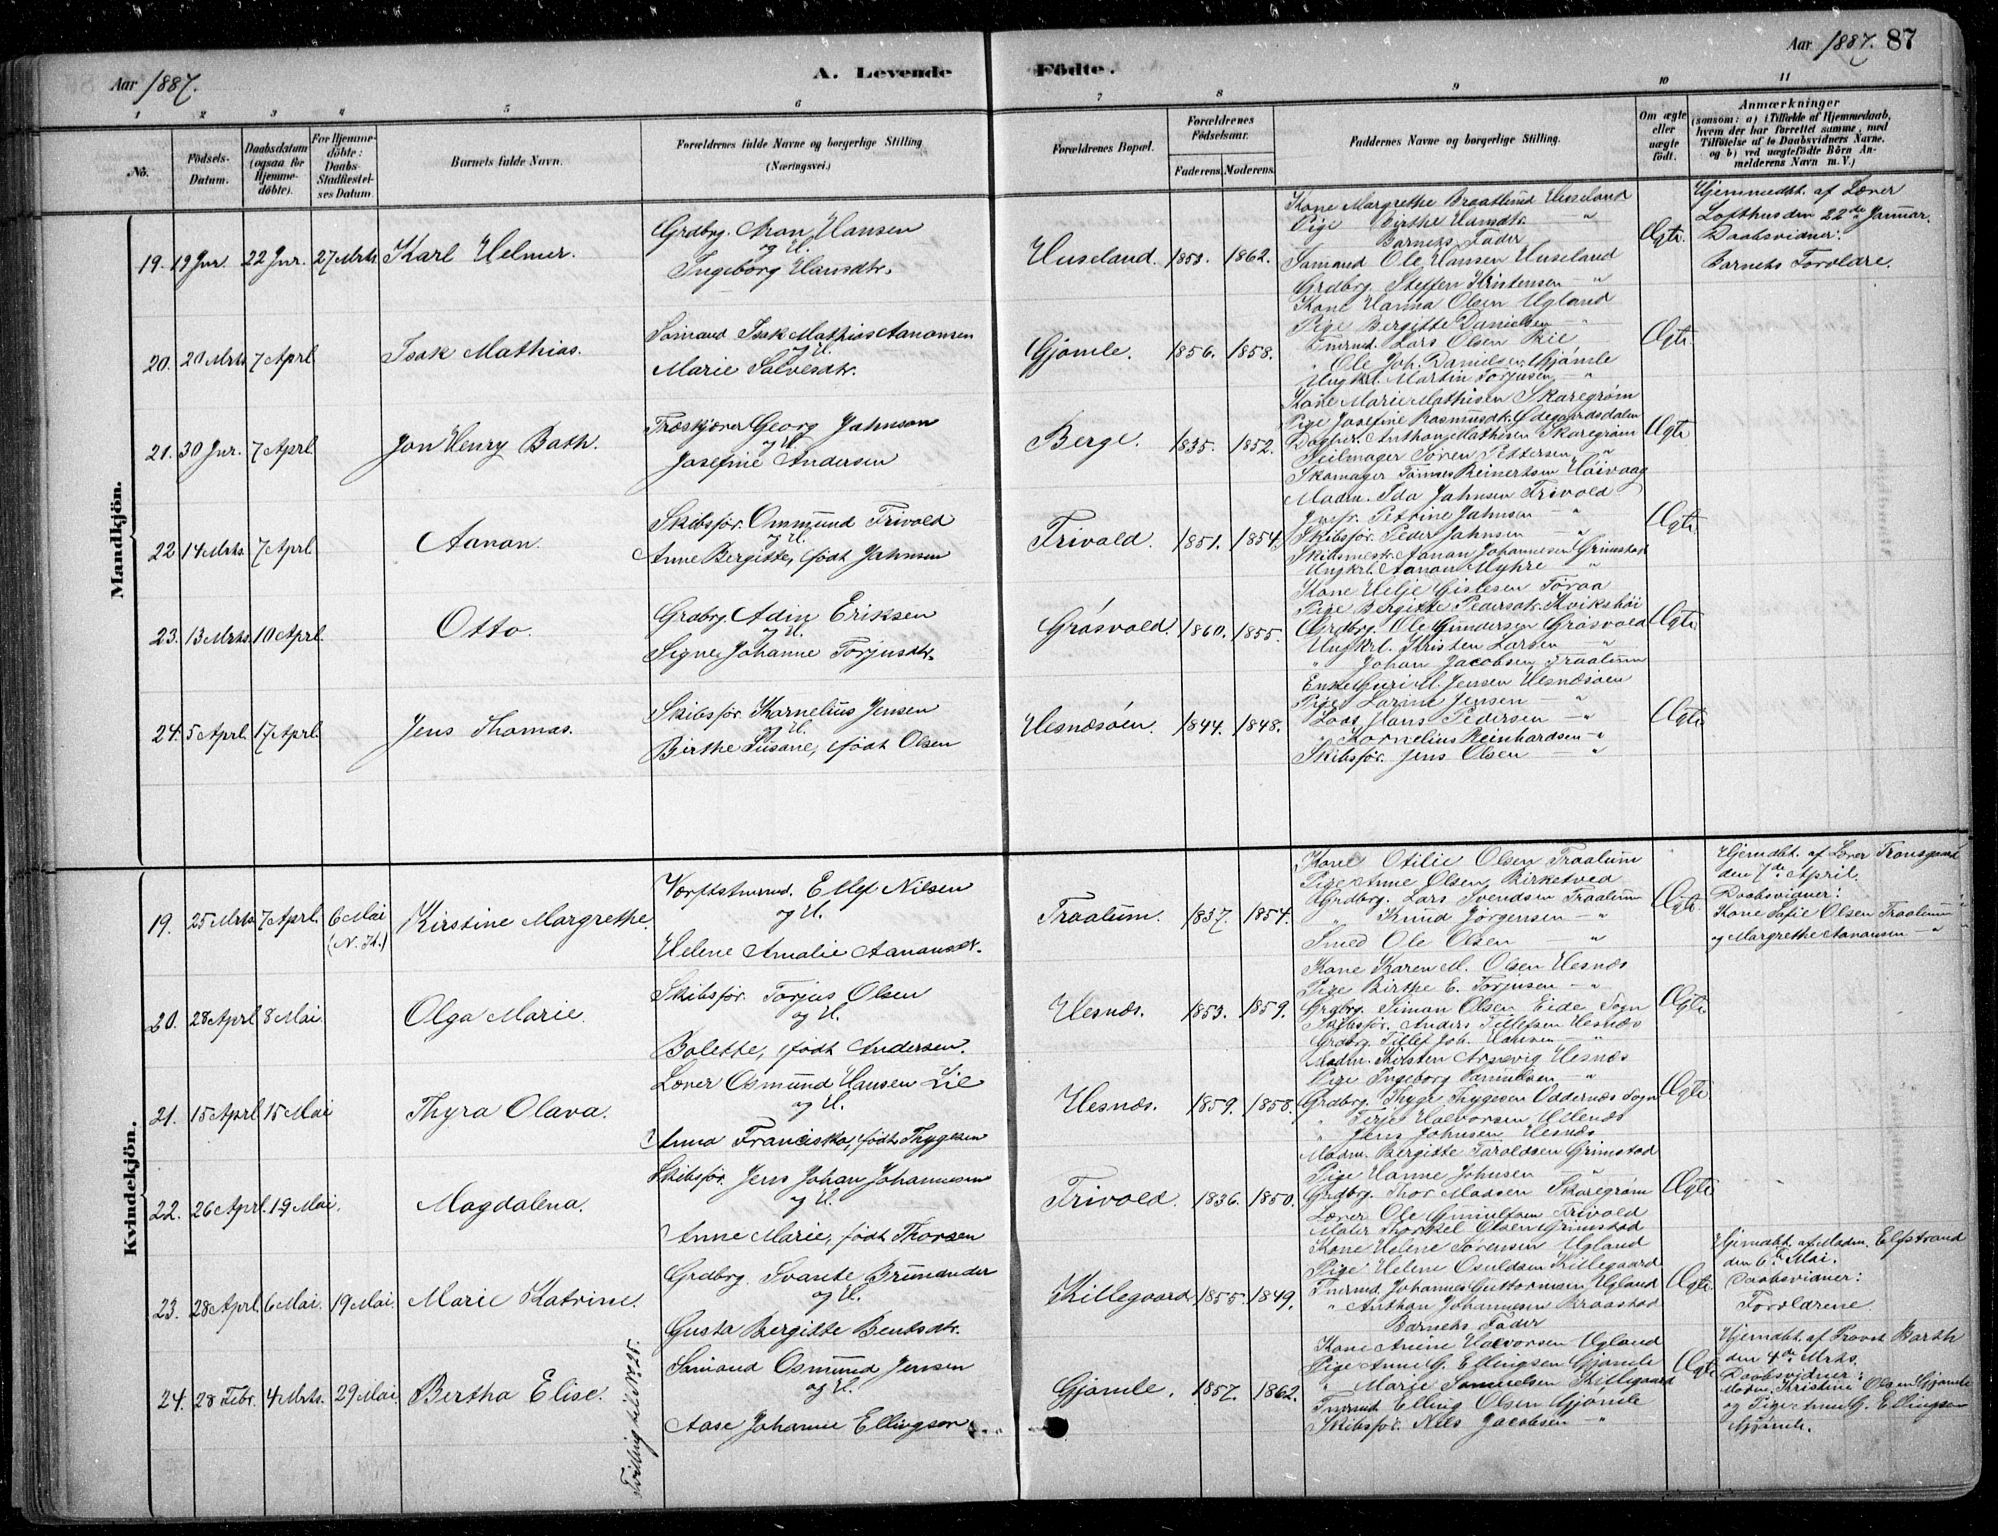 Aar 1887.
A. Levende Födte.
Aar 1887. 87
1 2 3 4 5 6 7 8 9 10 11
No.
Födsels-Datum.
Daabsdatum (ogsaa for Hjemme-döbte).
For Hjemme-döbte: Daabs-Stadfæstel-ses Datum.
Barnets fulde Navn.
Forældrenes fulde Navne og borgerlige Stilling (Næringsvei.)
Forældrenes Bopæl.
Forældrenes Födselsaar.
Faderens. Moderens.
Faddernes Navne og borgerlige Stilling.
Om ægte eller uægte födt.
Anmærkninger
(saasom: a) i Tilfælde af Hjemmedaab, hvem der har forrettet samme, med Tilföielse af to Daabsvidners Navne, og b) ved uægtefödte Börn An-melderens Navn m. V.)
Mandkjön.
19. 19 Jnr. 22 Jnr. 27 Mrts Karl Helmer.
Grdbrg. Aron Hansen
og H.
Ingeborg Hansdtr.
Huseland. 1853. 1862.
Kone Margrethe Braatlund Huseland
Pige Birthe Hansdtr. "
Barnets Fader
Sømand Ole Hansen Huseland
Grdbrg. Steffen Kristensen "
Ægte.
Hjemmedbt. af Lærer
Lofthus den 22de Januar.
Daabsvidner:
Barnets Forældre.
20. 20 Mrts. 7 April Isak Mathias.
Sømand Isak Mathias Aanonsen
og H.
Marie Salvesdtr.
Gjømle. 1856. 1858.
Kone Hanna Olsen Ugland
Pige Bergitte Danielsen "
Tmrmd. Lars Olsen Skie
" Ole Joh. Danielsen, Gjømle
Ungkrl. Martin Torjusen "
Ægte
21. 30 Jnr. 7 April Jon Henry Bath.
Træskjærer Georg Jahnson
og H.
Josefine Andersen
Berge. 1835. 1852.
Kone Marie Mathisen Skaregrøm
Pige Josefine Rasmusdtr. Ødegaardsdalen
Dagbrl. Anthon Mathisen Skaregrøm
Seilmager Søren Pettersen "
Skomager Tønnes Reinertsen Høivaag
Ægte
22 14 Mrts. 7 April Aanon.
Skibsfør. Ommund Frivold
og H.
Anne Bergitte, født Jahnsen
Frivold. 1851. 1854.
Madm. Ida Jahnsen Frivold
Jmfr. Petrine Jahnsen "
Skibsfør. Peder Jahnsen "
Skibsmestr. Aanon Johannesen Grimstad
Ungkrl. Aanon Myhre "
Ægte
23. 13 Mrts. 10 April. Otto.
Grdbrg. Adin Eriksen
og H.
Signe Johanne Torjusdtr.
Grøsvold. 1860. 1855.
Kone Silje Gislesen Toraa
Pige Bergitte Pedersdtr. Kvikshøi
Grdbrg. Ole Gundersen Grøsvold
Ungkrl. Kristen Larsen "
" Johan Jacobsen Traalum
Ægte
24. 5 April. 17 April. Jens Thomas.
Skibsfør. Kornelius Jensen
og H.
Birthe Susane, født Olsen
Hesnæsøen. 1844. 1848.
Enke Guri M. Jensen Hesnæsøen
Pige Larine Jensen "
Lods Hans Pedersen "
" Kornelius Reinhardsen "
Skibsfør. Jens Olsen "
Ægte
Kvindekjön.
19. 25 Mrts 7 April. 6 Mai (N. K.) Kirstine Margrethe.
Værftstmrmd. Ellef Nilsen
og H.
Helene Amalie Aanonsdtr.
Traalum. 1837. 1854.
Kone Otilie Olsen Traalum
Pige Anne Olsen Birketved
Grdbrg. Lars Svendsen Traalum
" Knud Jørgensen "
Smed Ole Olsen "
Ægte.
Hjemdbt. af Lærer Tronsgaard
den 7de April.
Daabsvidner:
Kone Sofie Olsen Traalum
og Margrethe Aanonsen "
20. 28 April 8 Mai Olga Marie.
Skibsfør. Torjus Olsen
og H.
Bolette, født Andersen.
Hesnæs. 1853. 1859.
Kone Karen M. Olsen Hesnæs
Pige Birthe E. Torjusen "
Grdbrg. Simon Olsen Eide Sogn
Skibsfør. Anders Tellefsen Hesnæs
Grdbrg. Tellef Joh. Hansen "
Ægte
21. 15 April. 15 Mai Thyra Olava.
Lærer Osmund Hansen Lie
og H.
Anna Franciska, født Thygesen
Hesnæs. 1859. 1858.
Madm. Kirsten Arnevig Hesnæs
Pige Ingeborg Samuelsen "
Grdbrg. Thyge Thygesen Oddernæs Sogn
" Terje Halvorsen Hesnæs
" Jens Johnsen Hesnæs
Ægte
22. 26 April. 19 Mai. Magdalena.
Skibsfør. Jens Johan Johannesen
og H.
Anne Marie, født Thorsen
Frivold. 1836. 1850.
Madm. Bergitte Taroldsen Grimstad
Pige Hanne Johnsen "
Grdbrg. Thor Madsen Skaregrøm
Lærer Ole Gunulfsen Frivold
Maler Thorkel Olsen Grimstad
Ægte
23. 28 April. 6 Mai. 19 Mai. Marie Katrine.
Grdbrg. Svante Brunander
og H.
Gusta Bergitte Bentsdtr.
Killegaard 1855. 1849.
Kone Helene Sørensen Ugland
Pige Helene Osuldsen Killegaard
Tmrmd. Johannes Guttormsen Ugland
" Anthon Johannesen Braastad
Barnets Fader
Ægte.
Hjemdbt. af Madm. Elfstrand
den 6te Mai.
Daabsvidner:
Forældrene
24. 28 Febr. 4 Mrts. 29 Mai Bertha Elise.
Tvilling til No 25.
Sømand Osmund Jensen
og H.
Aase Johanne Ellingsen
Gjømle. 1857. 1862.
Kone Anine Halvorsen Ugland
Pige Anne G. Ellingsen Gjømle
" Marie Samuelsen Killegaard
Tmrmd. Elling Olsen Gjømle
Skibsfør. Nils Jacobsen "
Ægte
Hjemdbt. af Provst Barth
den 4de Mrts.
Daabsvidner:
Madm. Kristine Olsen Gjømle
og Pige Anne G. Ellingsen
Gjømle.